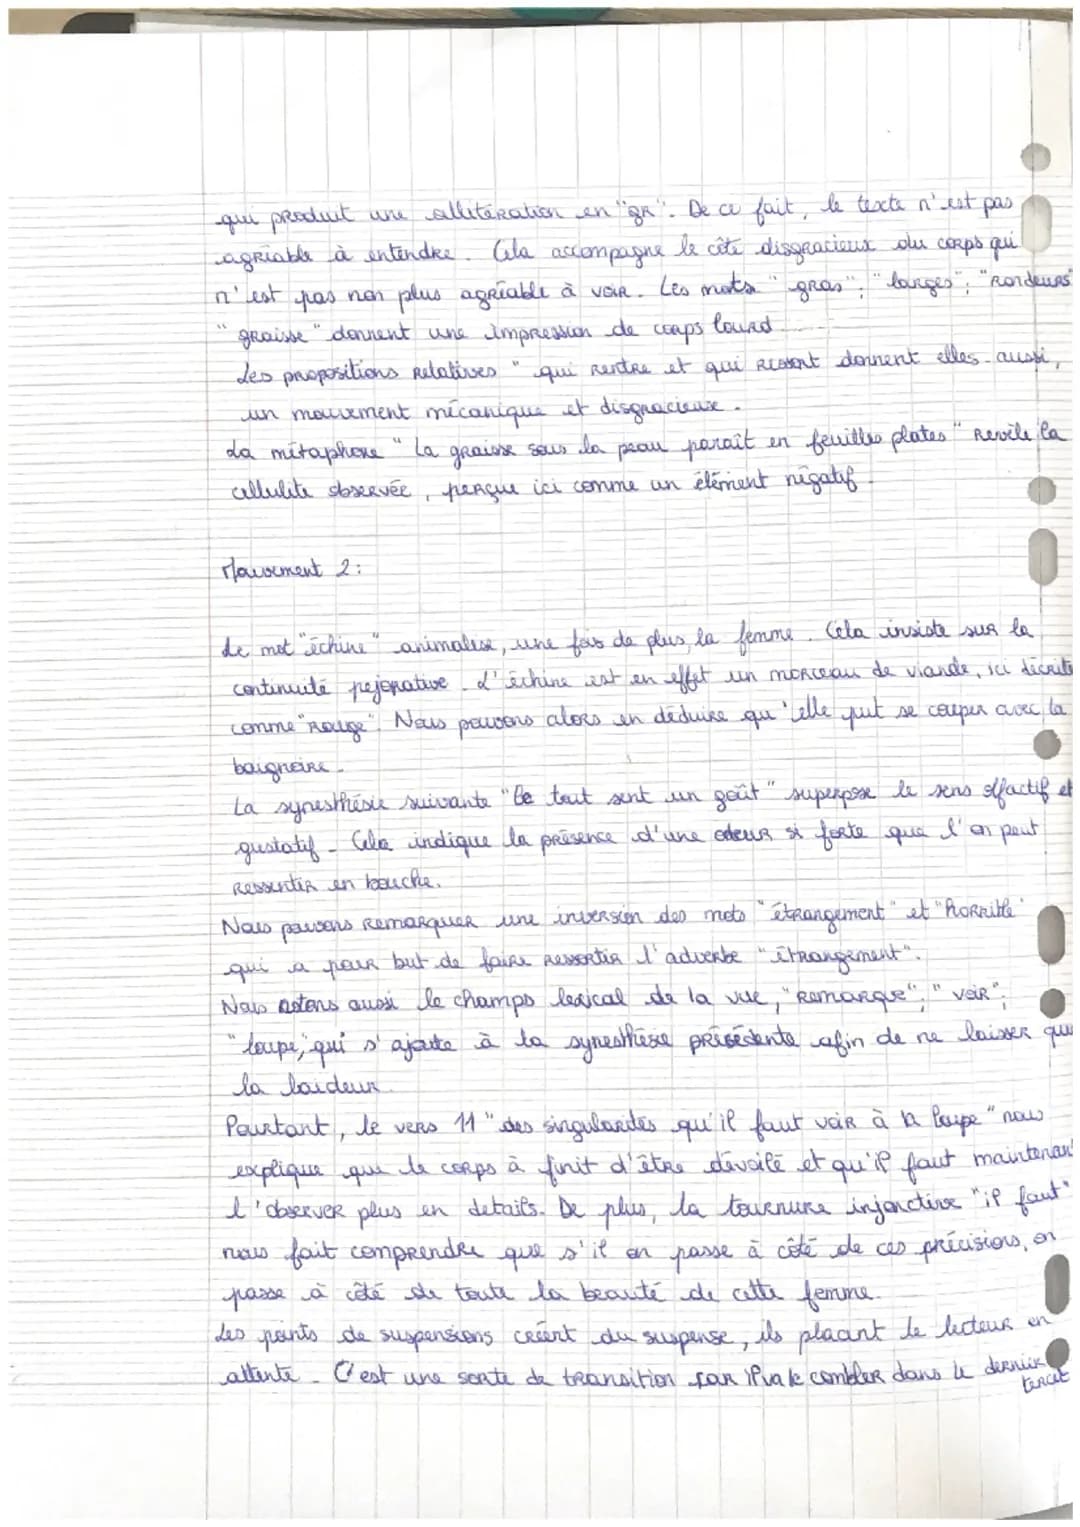 qui produit une allitération en "gr". De ce fait, le texte n'est pas
agréable à entendre. Cela accompagne le côté disgracieux du corps qui
n'est pas non plus agréable à voir. Les mots "gras"; "larges"; "rondeurs"
"graisse" donnent une impression de corps lourd
Les propositions relatives "qui rentre et qui ressort donnent elles-aussi,
un mouvement mécanique et disgracieuse.
La métaphore "La graisse sous la peau paraît en feuilles plates" Révèle la
cellulite observée, perçue ici comme un élément négatif.
Mouvement 2:
Le mot "échine" animalise, une fois de plus, la femme. Cela insiste sur la
continuité péjorative. L'échine est en effet un morceau de viande, ici décrite
comme "Rouge". Nous pouvons alors en déduire qu'elle put se couper avec la
baignoire.
La synesthésie suivante "le tout sent un goût" superpose le sens olfactif et
gustatif. Cela indique la présence d'une odeur si forte que l'on peut
Ressentir en bouche.
Nous pouvons remarquer une inversion des mots "étrangement" et "horrible"
qui a pour but de faire ressortir l'adverbe "étrangement".
Nous notons aussi le champs lexical de la vue, "Remarque"; "voir";
"loupe", qui s'ajoute à la synesthésie précédente afin de ne laisser que
la laideur.
Pourtant, le vers 11 "des singularités qu'il faut voir à la loupe" nous
explique que le corps à finit d'être dévoilé et qu'il faut maintenant
l'observer plus en détails. De plus, la tournure injonctive "il faut"
nous fait comprendre que s'il on passe à côté de ces précisions, on
passe à côté de toute la beauté de cette femme.
Les points de suspensions créent du suspense, ils placant le lecteur en
attente. C'est une sorte de transition car il va le combler dans le dernier
tercet